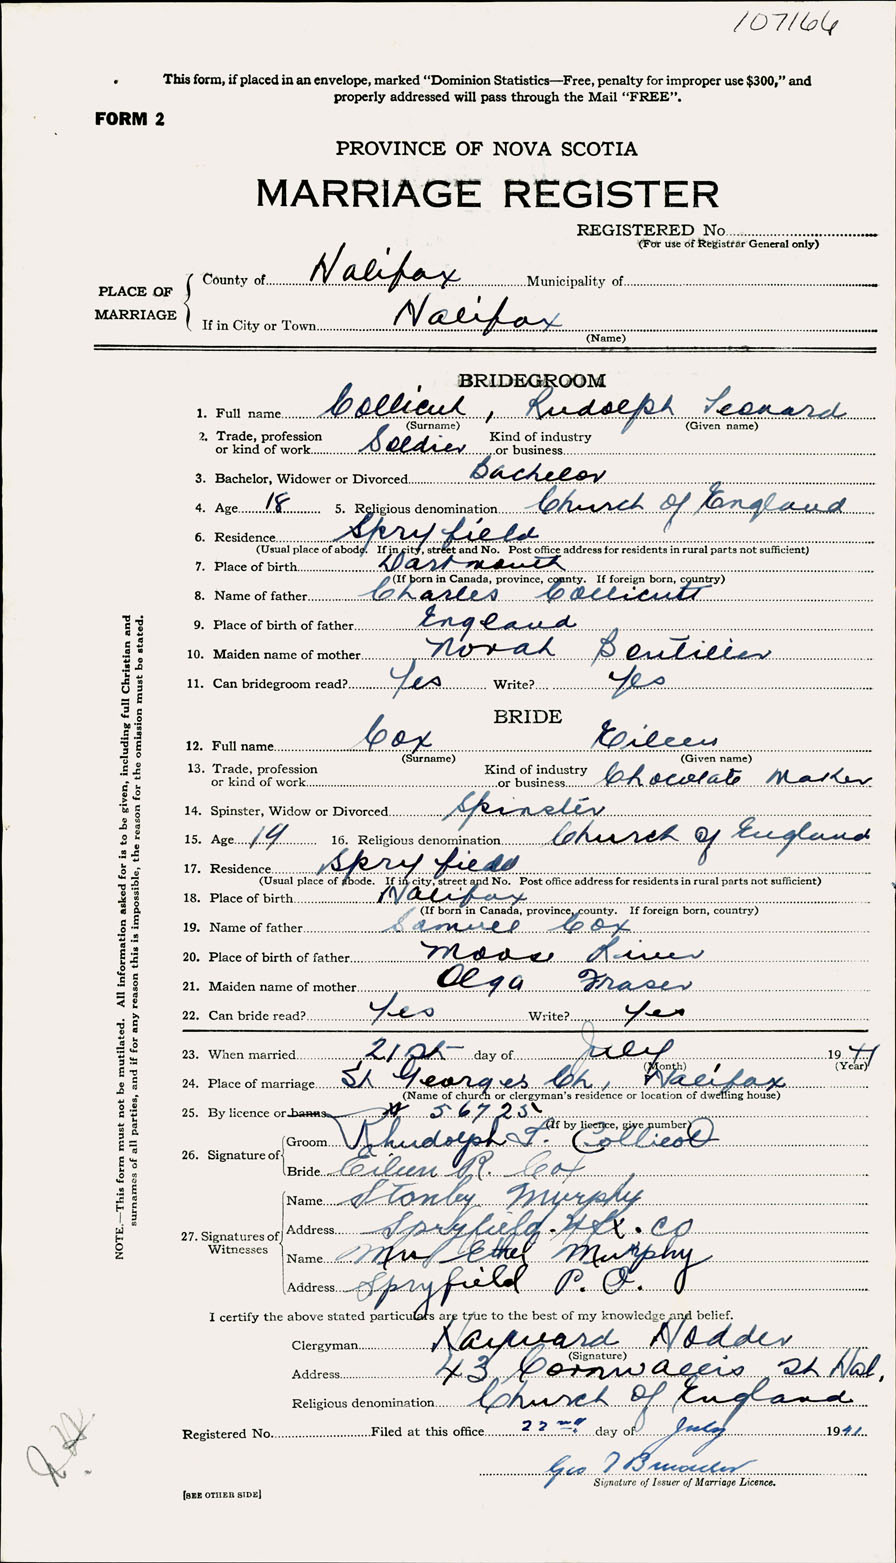 107166
This form, if placed in an envelope, marked "Dominion Statistics—Free, penalty for improper use $300," and
properly addressed will pass through the Mail "FREE".
FORM 2
PROVINCE OF NOVA SCOTIA
MARRIAGE REGISTER
REGISTERED No.
(For use of Registrar General only)
PLACE OF MARRIAGE
County of Halifax Municipality of
If in City or Town Halifax
(Name)
BRIDEGROOM
1. Full name Collicut, Rudolph Leonard
(Surname) (Given name)
2. Trade, profession or kind of work Soldier Kind of industry or business
3. Bachelor, Widower or Divorced Bachelor
4. Age 18 5. Religious denomination Church of England
6. Residence Spryfield
(Usual place of abode. If in city, street and No. Post office address for residents in rural parts not sufficient)
7. Place of birth Dartmouth
(If born in Canada, province, county. If foreign born, country)
8. Name of father Charles Collicutt
9. Place of birth of father England
10. Maiden name of mother Norah Boutilier
11. Can bridegroom read? Yes Write? Yes
BRIDE
12. Full name Cox Eileen
(Surname) (Given name)
13. Trade, profession or kind of work Kind of industry or business Chocolate Maker
14. Spinster, Widow or Divorced Spinster
15. Age 19 16. Religious denomination Church of England
17. Residence Spryfield
(Usual place of abode. If in city, street and No. Post office address for residents in rural parts not sufficient)
18. Place of birth Halifax
(If born in Canada, province, county. If foreign born, country)
19. Name of father Samuel Cox
20. Place of birth of father Moose River
21. Maiden name of mother Olga Fraser
22. Can bride read? Yes Write? Yes
23. When married 21st day of July 1941
(Month) (Year)
24. Place of marriage St Georges Ch, Halifax
(Name of church or clergyman's residence or location of dwelling house)
25. By licence or banns # 56725
(If by licence, give number)
26. Signature of
Groom Rhudolph L. Collicot
Bride Eileen R. Cox
27. Signatures of Witnesses
Name Stanley Murphy
Address Spryfield. Hfx. Co
Name Mrs Ethel Murphy
Address Spryfield P. O.
I certify the above stated particulars are true to the best of my knowledge and belief.
Clergyman Hayward Nodder
(Signature)
Address 43 Cornwallis St Hal.
Religious denomination Church of England
Registered No. Filed at this office 22nd day of July 1941
Geo
Signature of Issuer of Marriage Licence.
[SEE OTHER SIDE]
NOTE.—This form must not be mutilated. All information asked for is to be given, including full Christian and
surnames of all parties, and if for any reason this is impossible, the reason for the omission must be stated.